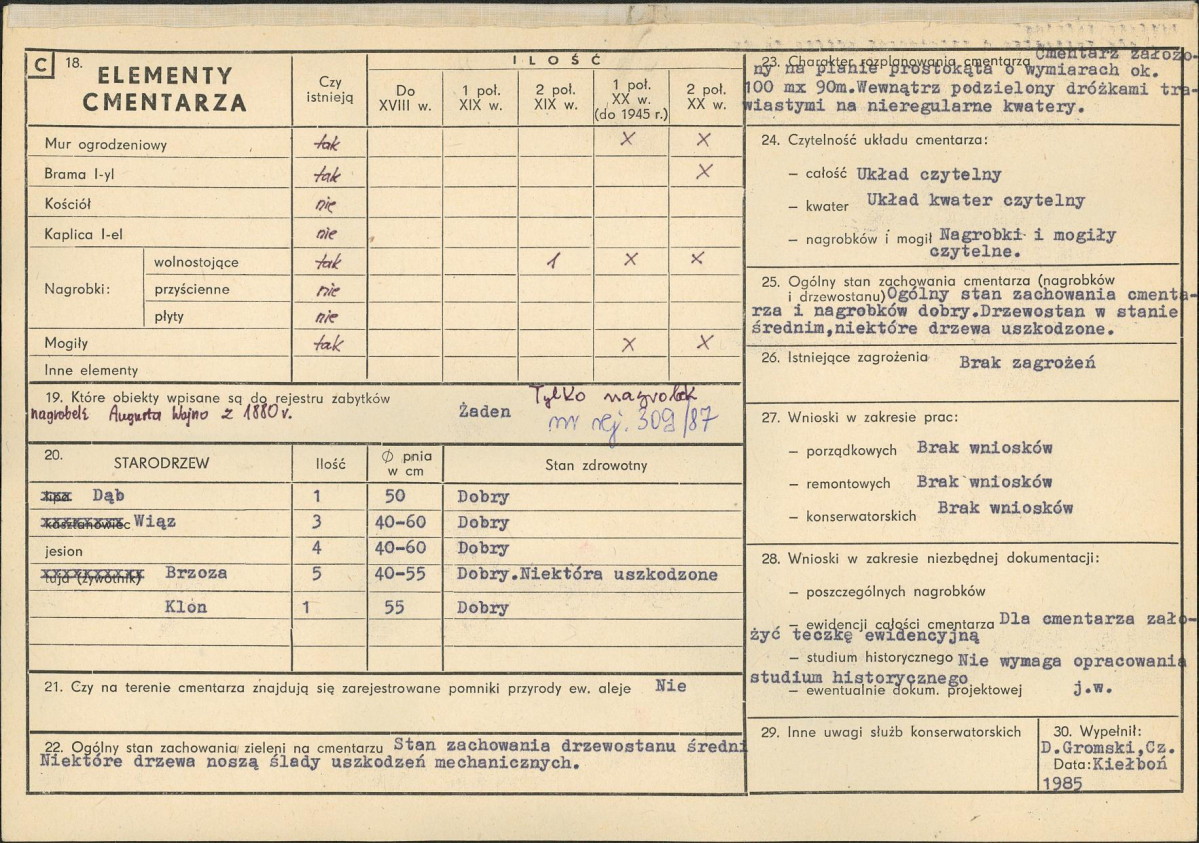 C 18. ELEMENTY CMENTARZA
Czy istnieją
ILOŚĆ
Do XVIII w.
1 poł. XIX w.
2 poł. XIX w.
1 poł. XX w. (do 1945 r.)
2 poł. XX w.
Mur ogrodzeniowy tak X X
Brama I-yl tak X
Kościół nie
Kaplica I-el nie
Nagrobki:
wolnostojące tak 1 X X
przyścienne nie
płyty nie
Mogiły tak X X
Inne elementy
19. Które obiekty wpisane są do rejestru zabytków
Tylko nagrobek
nagrobek Augusta Wojno z 1880 r. Żaden nr rej. 309/87
20. STARODRZEW Ilość Ø pnia w cm Stan zdrowotny
lipa Dąb 1 50 Dobry
kasztanowiec Wiąz 3 40-60 Dobry
jesion 4 40-60 Dobry
tuja (żywotnik) Brzoza 5 40-55 Dobry.Niektóra uszkodzone
Klon 1 55 Dobry
21. Czy na terenie cmentarza znajdują się zarejestrowane pomniki przyrody ew. aleje Nie
22. Ogólny stan zachowania zieleni na cmentarzu Stan zachowania drzewostanu średni
Niektóre drzewa noszą ślady uszkodzeń mechanicznych.
23. Charakter rozplanowania cmentarza Cmentarz założo-
ny na planie prostokąta o wymiarach ok.
100 mx 90m.Wewnątrz podzielony dróżkami tra-
wiastymi na nieregularne kwatery.
24. Czytelność układu cmentarza:
— całość Układ czytelny
— kwater Układ kwater czytelny
— nagrobków i mogił Nagrobki i mogiły
czytelne.
25. Ogólny stan zachowania cmentarza (nagrobków
i drzewostanu) Ogólny stan zachowania cmenta-
rza i nagrobków dobry.Drzewostan w stanie
średnim,niektóre drzewa uszkodzone.
26. Istniejące zagrożenia Brak zagrożeń
27. Wnioski w zakresie prac:
— porządkowych Brak wniosków
— remontowych Brak wniosków
— konserwatorskich Brak wniosków
28. Wnioski w zakresie niezbędnej dokumentacji:
— poszczególnych nagrobków
— ewidencji całości cmentarza Dla cmentarza zało-
żyć teczkę ewidencyjną
— studium historycznego Nie wymaga opracowania
studium historycznego
— ewentualnie dokum. projektowej j.w.
29. Inne uwagi służb konserwatorskich
30. Wypełnił:
D.Gromski,Cz.
Data: Kiełboń
1985